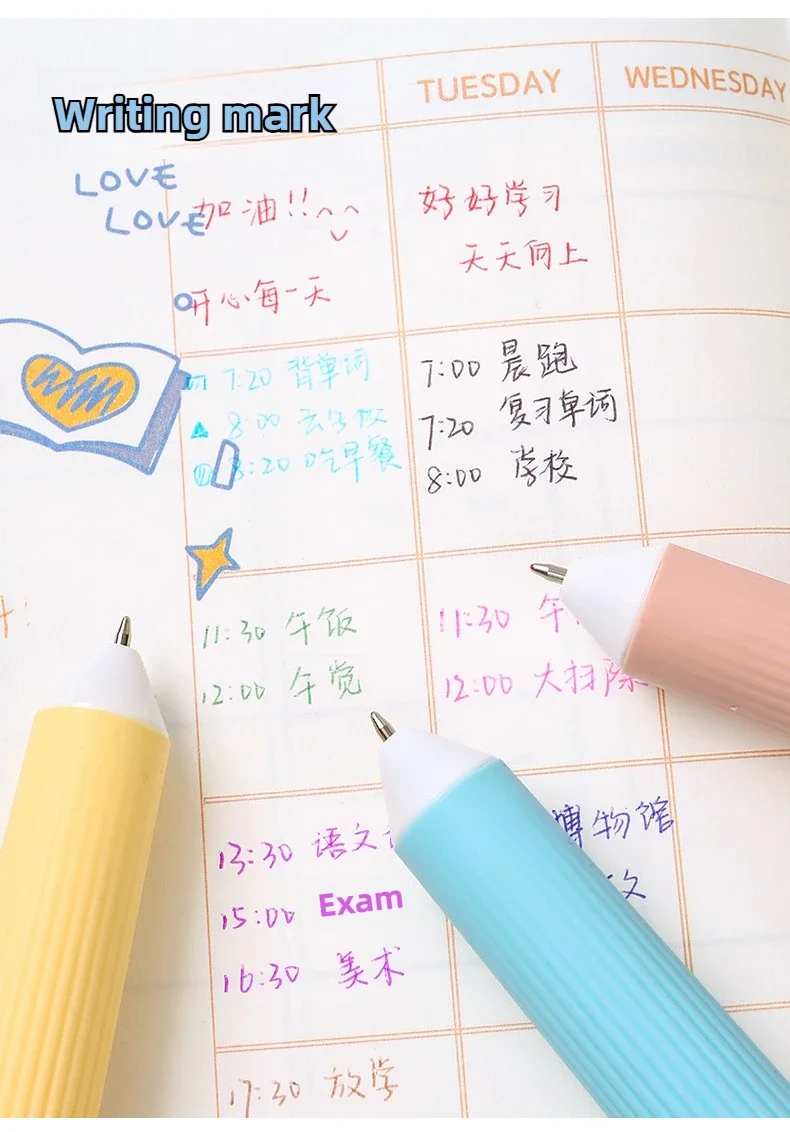 Writing mark
TUESDAY
WEDNESDAY
LOVE
LOVE
加油!!
开心每一天
好好学习
天天向上
7:20 背单词
8:00 去学校
8:20 吃早餐
7:00 晨跑
7:20 复习单词
8:00 学校
11:30 午饭
12:00 午觉
11:30 午
12:00 大扫除
13:30 语文
15:00 Exam
16:30 美术
博物馆
文
17:30 放学